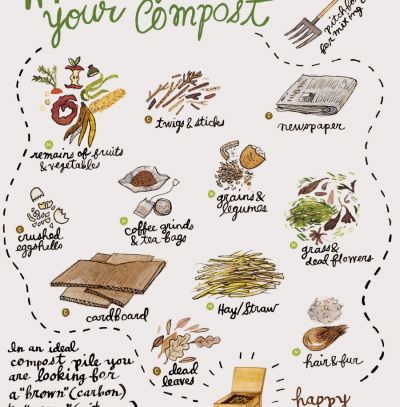 your Compost
pitchfork
for mixing
N
C
C
twigs & sticks
newspaper
remains of fruits
& vegetables
N
grains &
legumes
C
crushed
eggshells
N
coffee grinds
& tea bags
N
grass &
dead flowers
C
cardboard
N
Hay/Straw
N
hair & fur
C
dead
leaves
In an ideal
compost pile you
are looking for
a "brown" (carbon)
happy